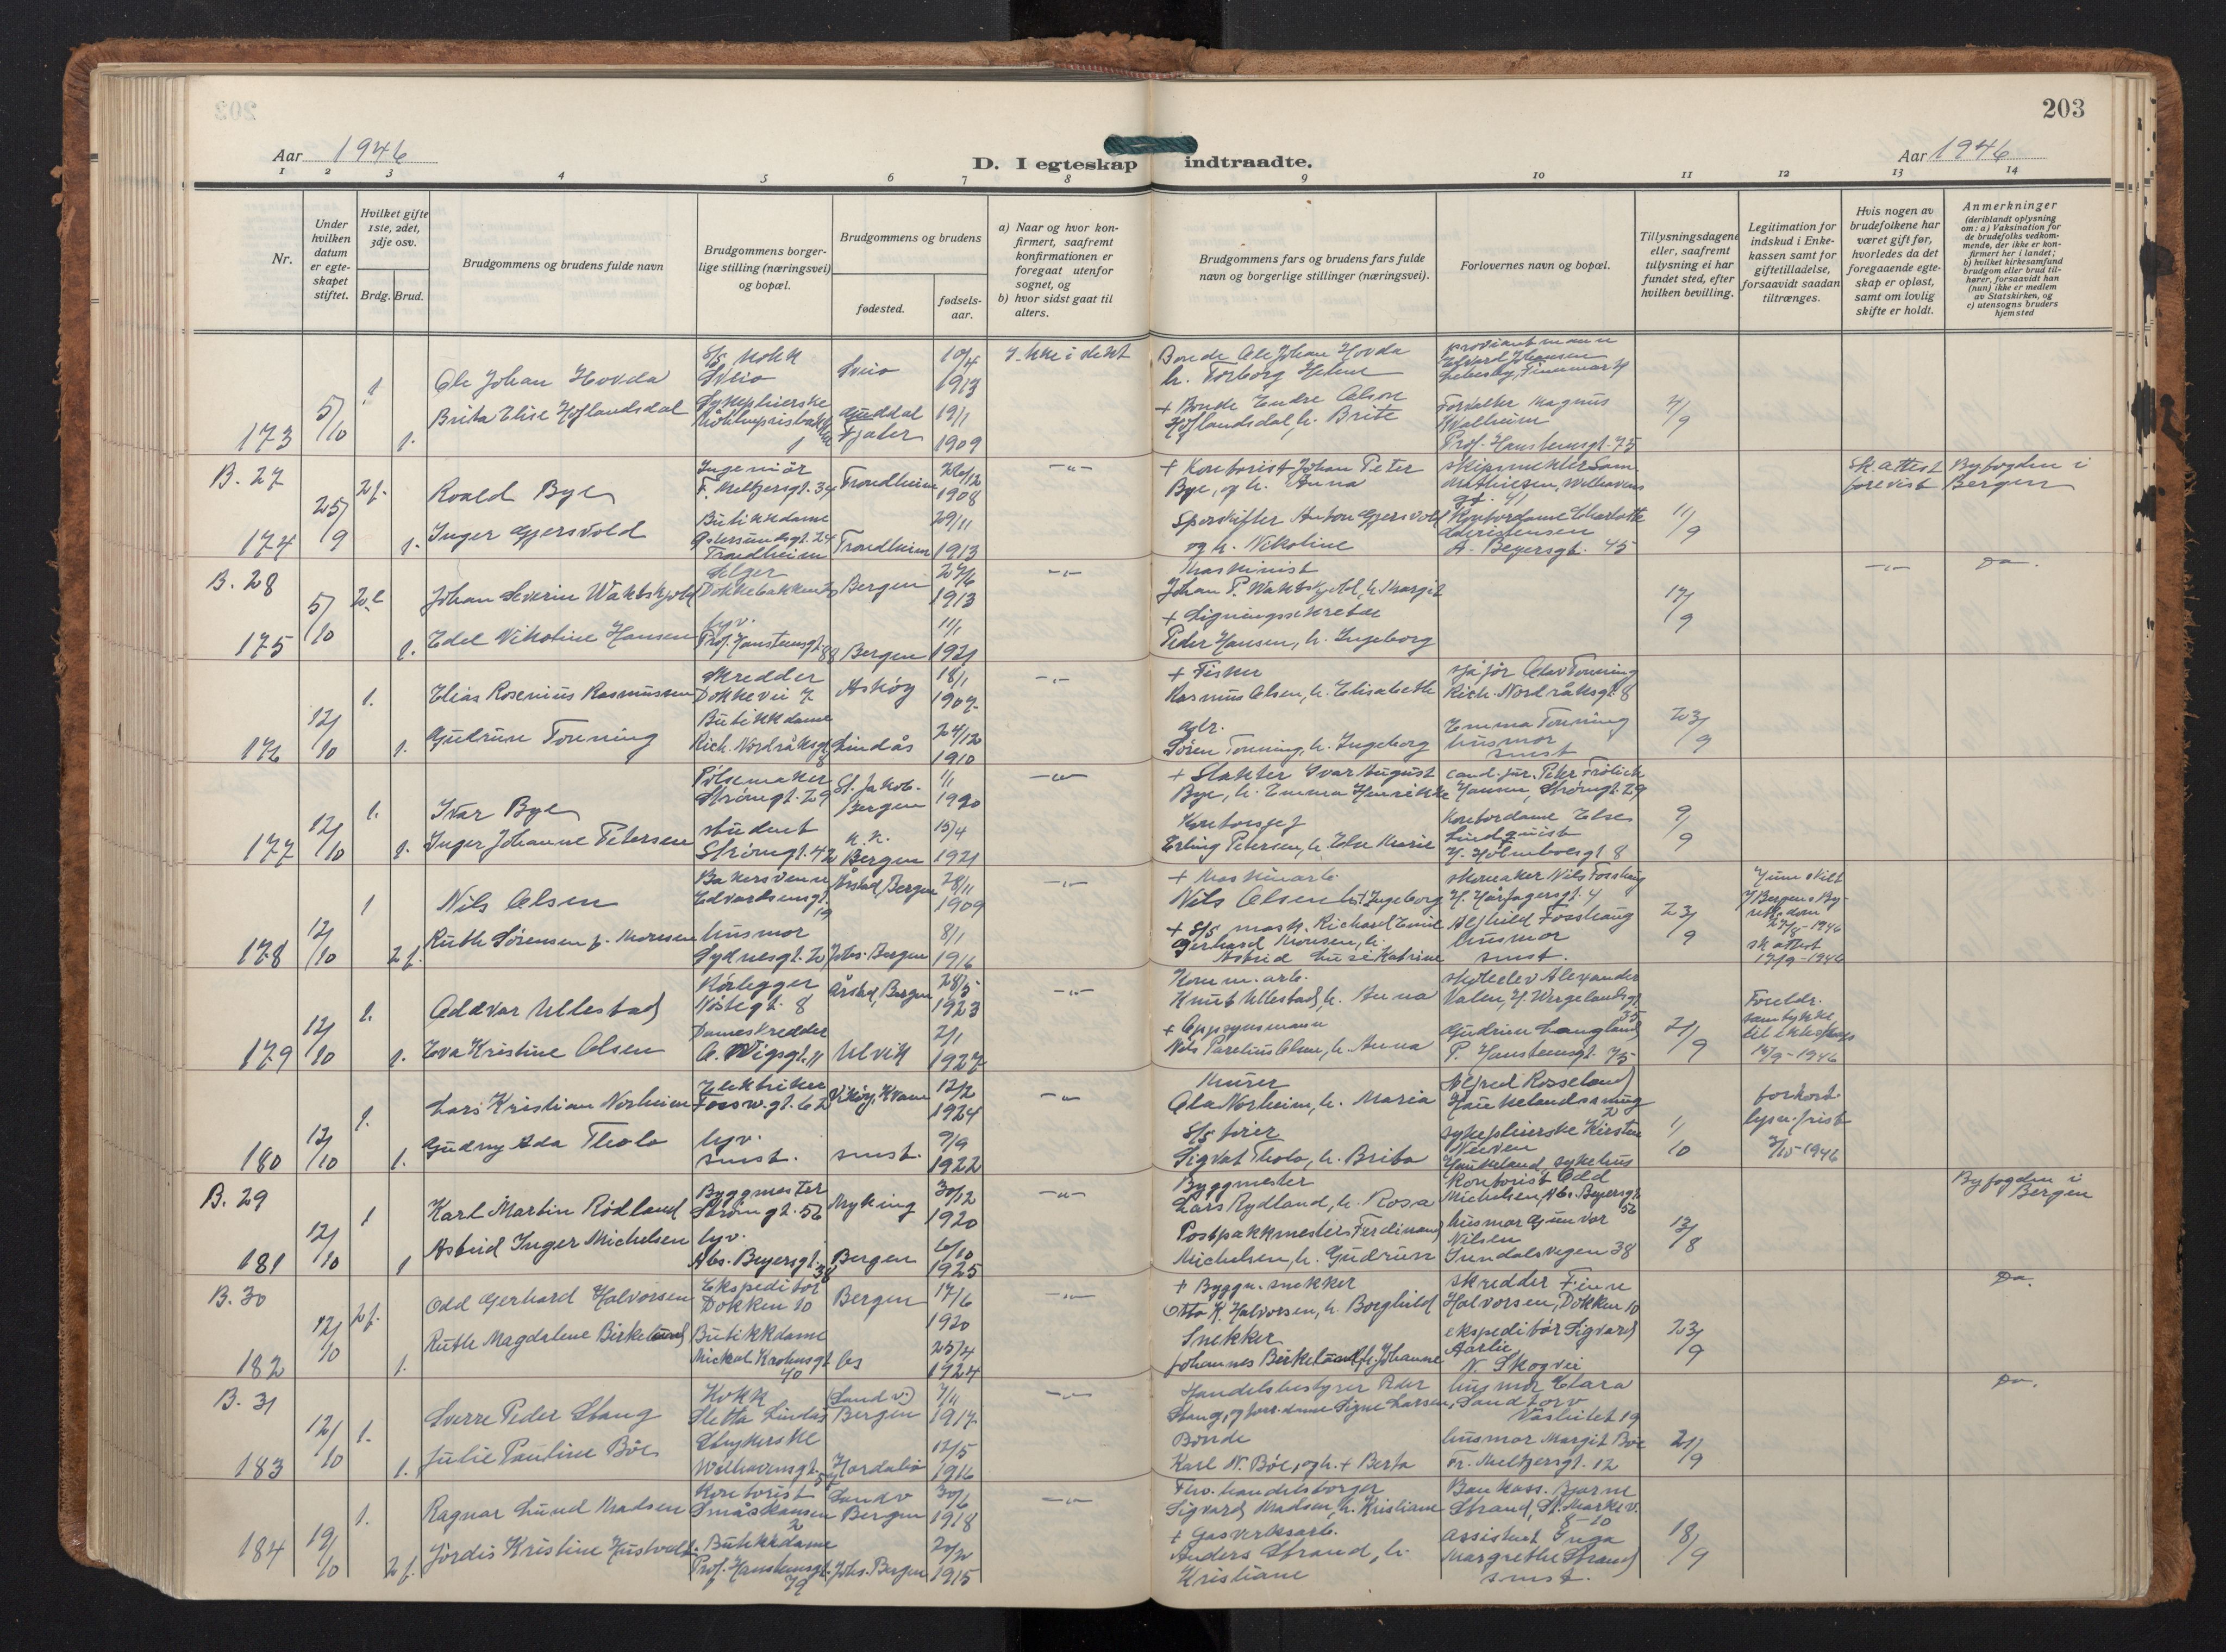 203
Aar 1946
D. I egteskap indtraadte.
Aar 1946
1 2 3 4 5 6 7 8 9 10 11 12 13 14
Nr.
Under hvilken datum er egteskapet stiftet.
Hvilket gifte 1ste, 2det, 3dje osv.
Brdg. Brud.
Brudgommens og brudens fulde navn
Brudgommens borgerlige stilling (næringsvei) og bopæl.
Brudgommens og brudens
fødested.
fødselsaar.
a) Naar og hvor konfirmert, saafremt konfirmationen er foregaat utenfor sognet, og
b) hvor sidst gaat til alters.
Brudgommens fars og brudens fars fulde navn og borgerlige stillinger (næringsvei).
Forlovernes navn og bopæl.
Tillysningsdagene eller, saafremt tillysning ei har fundet sted, efter hvilken bevilling.
Legitimation for indskud i Enkekassen samt for giftetilladelse, forsaavidt saadan tiltrænges.
Hvis nogen av brudefolkene har været gift før, hvorledes da det foregaaende egteskap er opløst, samt om lovlig skifte er holdt.
Anmerkninger (deriblandt oplysning om: a) Vaksination for de brudefolks vedkommende, der ikke er konfirmert her i landet; b) hvilket kirkesamfund brudgom eller brud tilhører, forsaavidt han (hun) ikke er medlem av Statskirken, og c) utensogns bruders hjemsted
173 5/10 1. Ole Johan Hovda S/S kokk Sveio Sveio 10/4 1913
Bonde Ole Johan Hovda
1. Brita Elise Hoflandsdal Sykepleierske Guddal Fjaler 19/1 1909
+ Bonde Endre Olson Hoflandsdal, h. Brite
Forvalter Magnus Kvalheim Prof. Hansteensgt. 75
B. 27
174 25/9 2f. Roald Bye Ingeniør F. Meltzersgt. 34 Trondheim 1908
+ Kontorist Johan Peter Bye, og h. Anna
sk. attest forevist
Byfogden i Bergen
1. Inger Gjersvold Butikkdame Østersundsgt. 24 Trondheim Trondheim 29/11 1913
Sporskifter Anton Gjersvold og h. Nikoline
Kontordame Charlotte A. Beyersgt. 45 11/9
B. 28
175 5/10 Johan Severin Wakbskjold Selger Dokkebakken Bergen 27/6 1913
Maskinist Johan P. Wakbskjold, h. Margit 17/9
1. Edel Nikoline Hansen hjv. Prof. Hansteensgt. 88 Bergen 11/1 1921
Peder Hansen, h. Ingeborg
Do.
176 12/10 1. Elias Rosenius Rasmussen Skredder Dokkevei 7 Askøy 18/1 1907
+ Fisker Rasmus Olsen, h. Elisabeth
sjåfør Olav Tonning Rich. Nordråksgt. 8
1. Gudrun Tonning Butikkdame Rich. Nordråksgt. 8 Lindås 24/12 1910
Søren Tonning, h. Ingeborg
Emma Tonning husmor smst 23/9
177 12/10 1. Ivar Bye Pølsemaker Strømgt. 29 St. Jakob. Bergen 1/1 1920
+ Slakter Ivar August Bye, h. Emma Henrikke
cand. jur. Peter Frölich Hansen, Strømgt. 29
1. Inger Johanne Petersen student Strømgt. 42 Bergen 15/4 1921
Erling Petersen, h. Else Marie
Kontordame Else Lindquist 9/9
178 12/10 1 Nils Olsen Bakersvenn Edvardsensgt. 19 Årstad, Bergen 28/11 1909
+ Maskinarb. Nils Olsen
Skomaker Nils Fosshaug H. Hårfagersgt. 4
2f. Ruth Sørensen f. Monsen husmor Sydnesgt. Johs. Bergen 8/1 1916
+ S/S mask. Richard Emil Gerhard Monsen, h. Astrid Luise Katrine
Alfhild Fosshaug husmor smst. 23/9
sk attest 12/9-1946
179 12/10 1. Oddvar Ullestad Rørlegger Nøstegt. 8 Årstad, Bergen 28/5 1923
Komm. arb. Knut Ullestad, h. Anna
1. Eva Kristine Olsen Dameskredder Ulvik 2/1 1927
+ Oppsynsmann Nils Parelius Olsen, h. Anna
Gudrun Langland P. Hansteensgt. 75
Foreldr. samtykke
180 12/10 1. Lars Kristian Norheim Elektriker Fossw.gt. 62 Vikøy, Kvam 12/2 1924
Murer Ola Norheim, h. Maria
Alfred Rosseland
1. Gudny Ada Tholo hjv. smst. smst. 9/9 1922
S/S fører Sigvat Tholo, h. Brita
sykepleierske Kirsten Haukeland sykehus
forkort. lysn. frist
B. 29
181 12/10 1 Karl Martin Rødland Byggmester Strømgt. 56 Myking 30/12 1920
Byggmester Lars Rydland, h. Rosa
Kontorist Odd Michelsen, Abs. Beyersgt. 56
Byfogden i Bergen
1 Astrid Inger Michelsen hjv. Abs. Beyersgt. 38 Bergen 6/10 1925
Postpakkmester Ferdinand Michelsen, h. Gudrun
husmor Gunvor Nilsen Sundalsvegen 38 13/8
B. 30
182 12/10 2f. Odd Gerhard Halvorsen Ekspeditør Dokken 10 Bergen 17/6 1920
+ Byggn. snekker Otto K. Halvorsen, h. Borghild
skredder Finn Halvorsen, Dokken 10
Do.
1. Ruth Magdalene Birkelund Butikkdame Mickal Krohnsgt 40 25/4 1924
Snekker Johannes Birkelund, h. Johanne
ekspeditør Sigvard Aarlie N. Skogvei 23/9
B. 31
183 12/10 1. Sverre Peder Stang Kokk Sletta Lindås (Sandv.) Bergen 7/11 1917
Handelsbestyrer Peder Stang, Signe Larsen
husmor Clara Sandtorv
Do.
1. Julie Pauline Böe Strykerske Welhavensgt. Hordabø 12/5 1916
Bonde Karl N. Böe, og h. + Berta
husmor Margit Böe Fr. Meltzersgt. 12 21/9
184 19/10 1. Ragnar Lund Madsen Kontorist Småskansen 2 Sandv Bergen 30/6 1918
Sigvard Madsen, h. Kristiane
Bankass. Bjarne Strand, St. Markev. 8-10
2f. Jördis Kristine Hustvedt Butikkdame Prof. Hansteensgt. 79 Johs. Bergen 1915
+ Gasverksarb. Anders Strand, h. Kristiane
Assistent Inga Margrethe Strand smst. 18/9